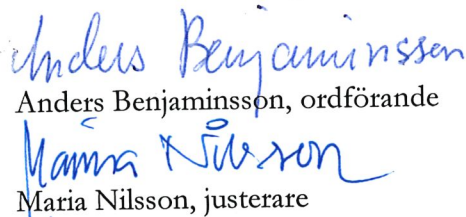 Anders Benjaminsson
Anders Benjaminsson, ordförande
Maria Nilsson
Maria Nilsson, justerare